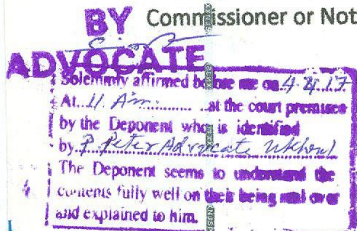 BY Commissioner or Not
ADVOCATE
Solemnly affirmed before me on 4.4.17
At 11 Am at the court premises
by the Deponent who is identified
by P. Peter Advocate, Ukhrul
The Deponent seems to understand the
contents fully well on their being read over
and explained to him.